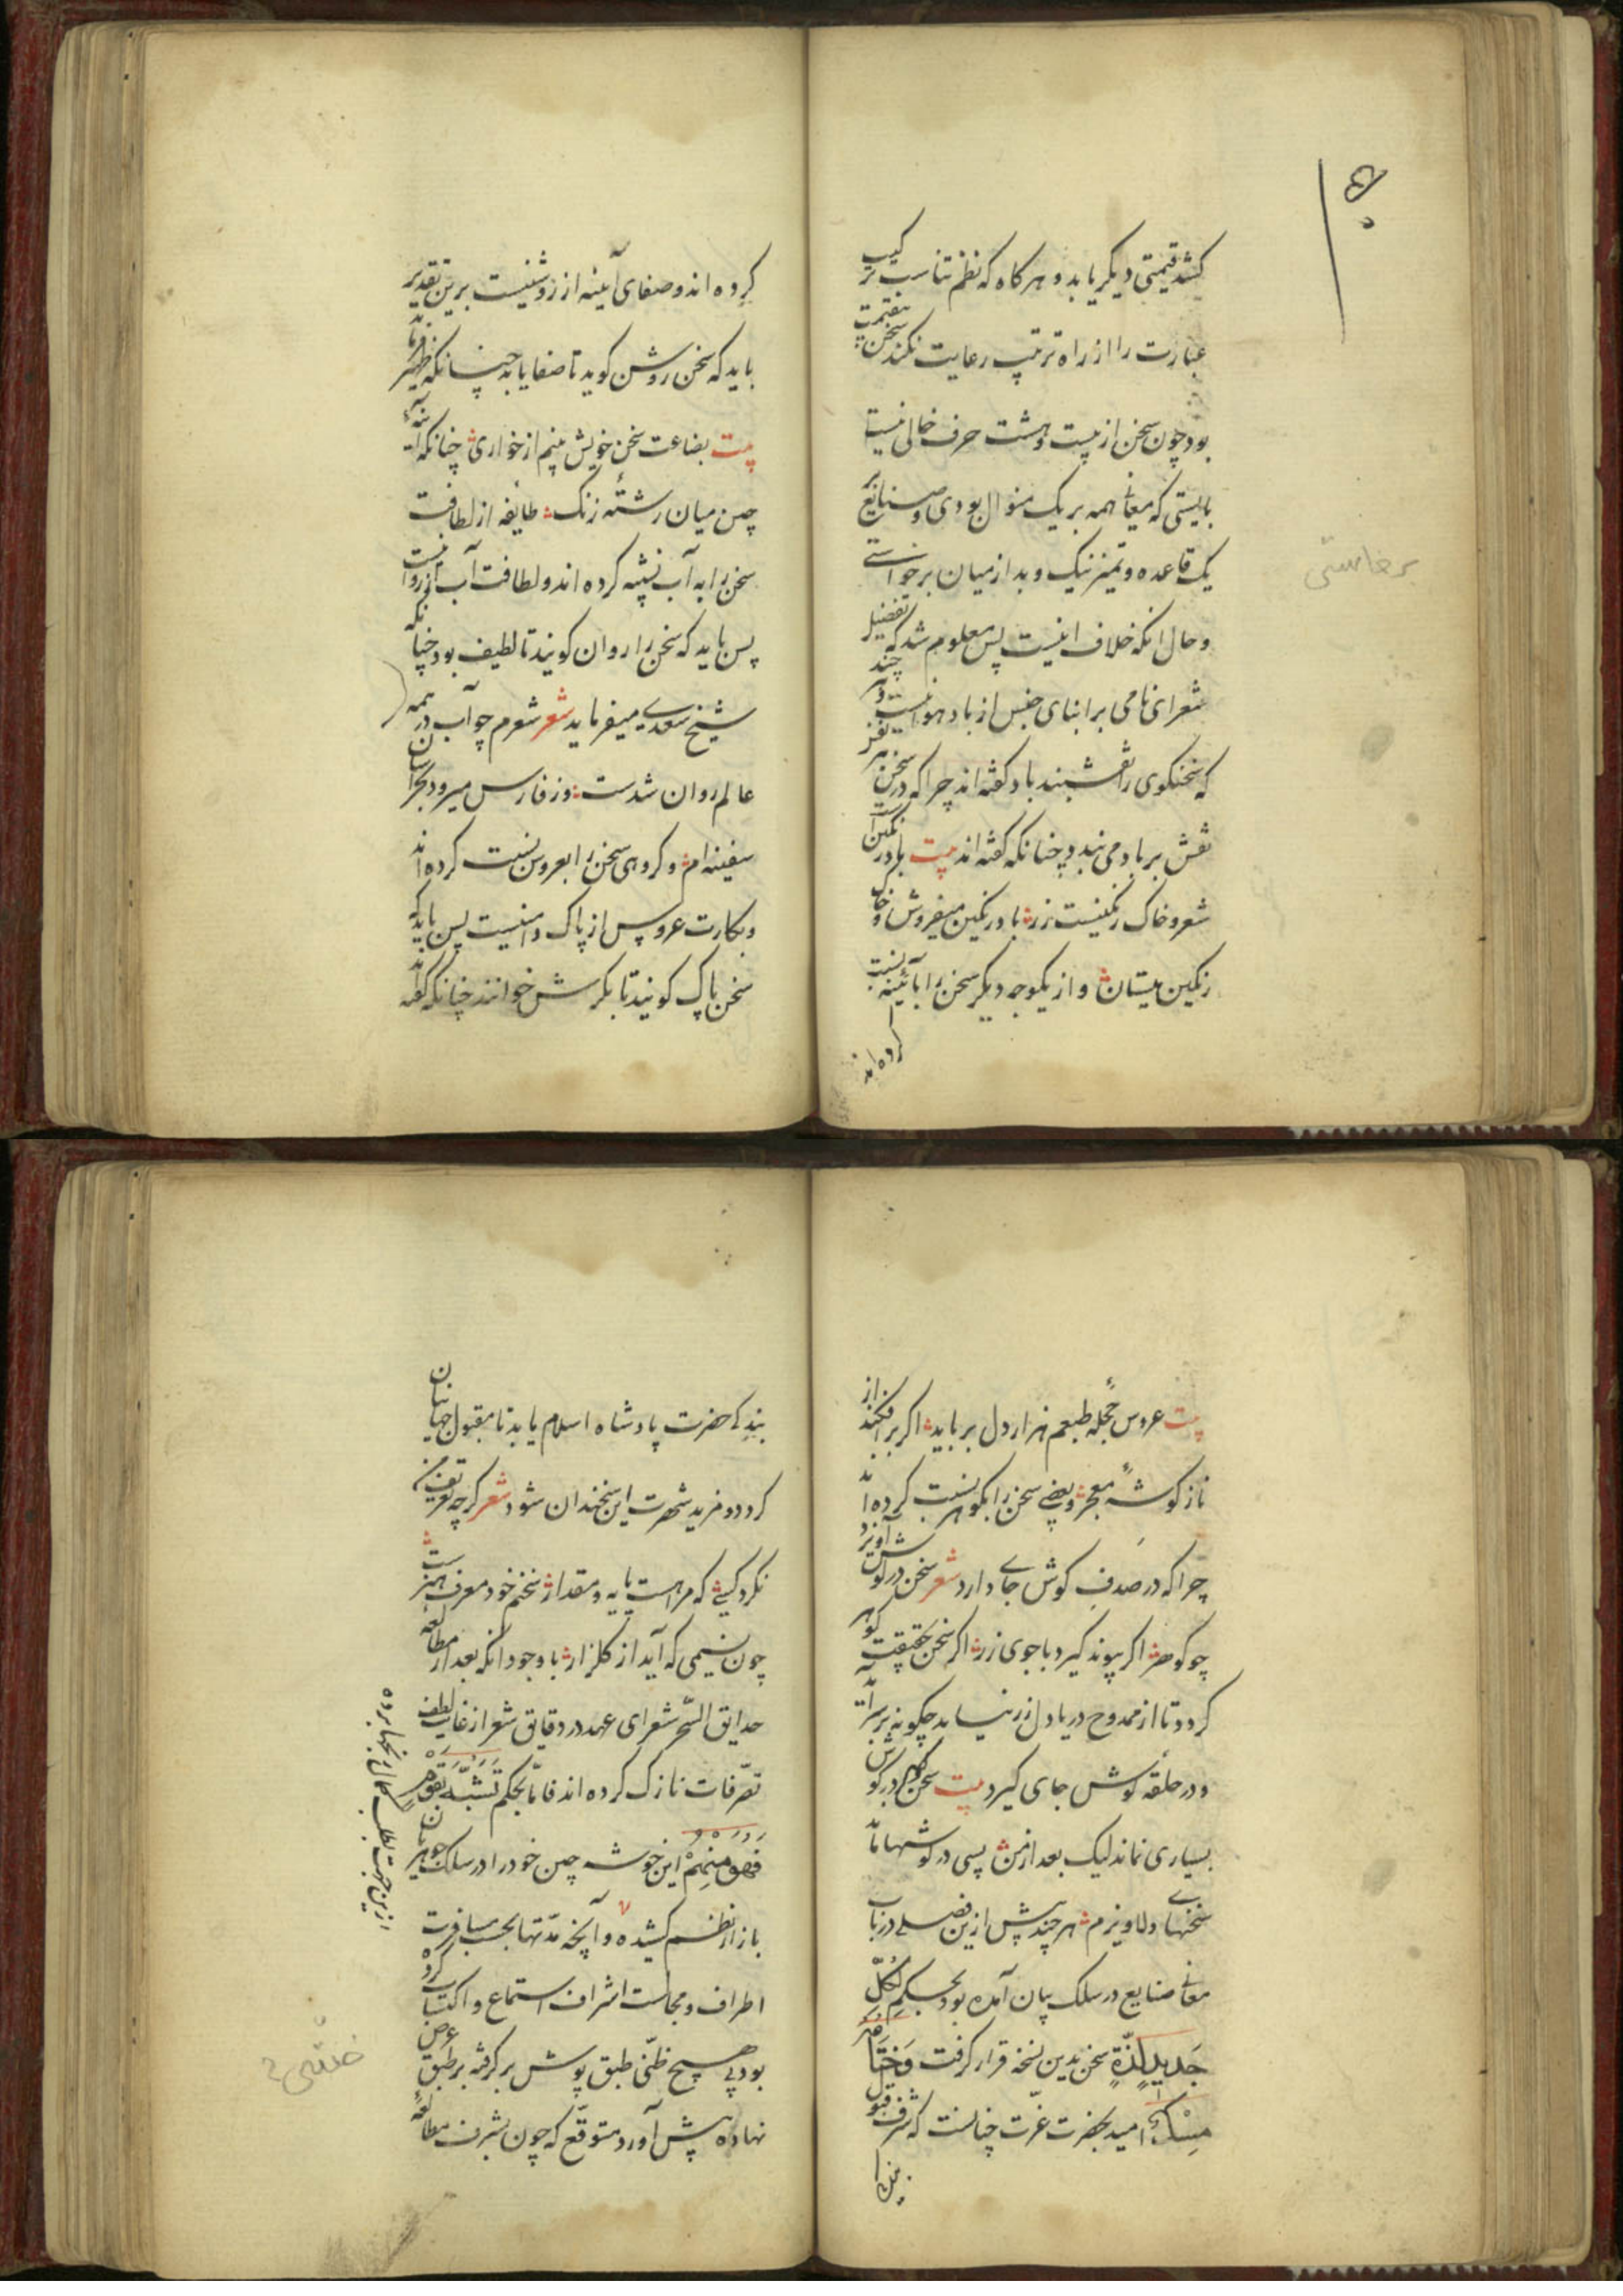 کشد قیمتی دیگر یابد و هر گاه که نظم تناسب ترکیب
عبارت را از راه ترتیب رعایت نکند سخن بقیمت
بود چون سخن از بیست و هشت حرف خالی نیست
بایستی که معانی همه بر یک منوال بودی و صنایع بر
یک قاعده و تمیز نیک و بد از میان برخواستی
و حال آنکه خلاف اینست پس معلوم شد که تفضیل
شعرای نامی بر ابنای جنس از باد هوا نیست و هر چند
که سخنگوی را نقشبند باد گفته اند چرا که در سخن نغز
نقش بر باد می بندد چنانکه گفته اند بیت باد رنگین است
شعر و خاک رنگینست زر باد رنگین میفروش و خاک
رنگین میستان و از یکوجه دیگر سخن را بآئینه نسبت
کرده اند
برخاستی
کرده اند و صفای آینه از روشنیست برین تقدیر
باید که سخن روشن گوید تا صفا یابد چنانکه ظهیر
بیت بضاعت سخن خویش بینم از خواری چنانکه آینه
چین میان رشته زنک طایفه از لطافت
سخن را به آب نسبه کرده اند و لطافت آب از روانیست
پس باید که سخن را روان گویند تا لطیف بود چنانکه
شیخ سعدی میفرماید شعر شعرم چو آب در همه
عالم روان شدست وز فارس میرود بخراسان
سفینه ام و گروهی سخن را بعروس نسبت کرده اند
و بکارت عروس از پاک دامنیست پس باید که
سخن پاک گویند تا بکرش خوانند چنانکه گفته
بیت عروس حجله طبعم هزار دل برباید اگر برافکند از
ناز گوشه معجر و بعضی سخن را بگوهر نسبت کرده اند
چرا که در صدف گوش جای دارد شعر سخن در گوش آویزد
چو گوهر اگر پیوند گیرد با جوی زر اگر سخن بحقیقت گوهر
گردد تا از ممدوح دریا دل زر نیابد چگونه بر سر آید
و در حلقه گوش جای گیرد بیت سخن گر در گوش
بسیاری نماند لیک بعد از من بسی در گوشها ماند
سخنهای دلاویزم هر چند پیش ازین فصلی در باب
معانی صنایع در سلک بیان آمده بود بحکم لکل
جدید لذة سخن بدین نسخه قرار گرفت و ختامه
مسک امید بحضرت عزت چنانست که شرف قبول
بندگی حضرت پادشاه اسلام یابد تا مقبول جهانیان
گردد و مزید شهرت این سخندان شود شعر گرچه تعریف من
نکرد کسی که مرا هست پایه و مقدار سخنم خود معرف هنر است
چون نسیمی که آید از گلزار با وجود آنکه بعد از مطالعه
حدایق السحر شعرای عهد در دقایق شعر از غایت لطف
تصرفات نازک کرده اند فاما بحکم من تشبه بقوم
فهو منهم این خوشه چین خود را در سلک جوهریان
بازار نظم کشیده و آنچه مدتها بحسب مسافرت
اطراف و مجالست اشراف استماع و اکتساب کرده
بود بی هیچ ظنی طبق پوش برگرفته بر طبق عرض
نهاده پیش آورد متوقع که چون بشرف مطالعه